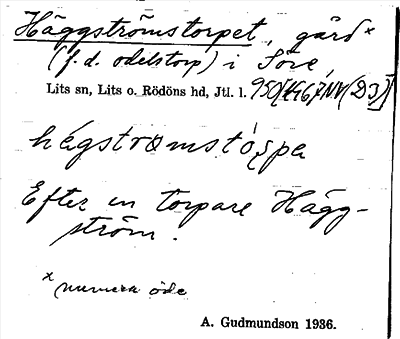 Häggströmstorpet, gård x
(f.d. odelstorp) i Söre,
Lits sn, Lits o. Rödöns hd, Jtl. l.
hägstrømstå̀spa
Efter en torpare Hägg-
ström.
x numera öde
A. Gudmundson 1936.